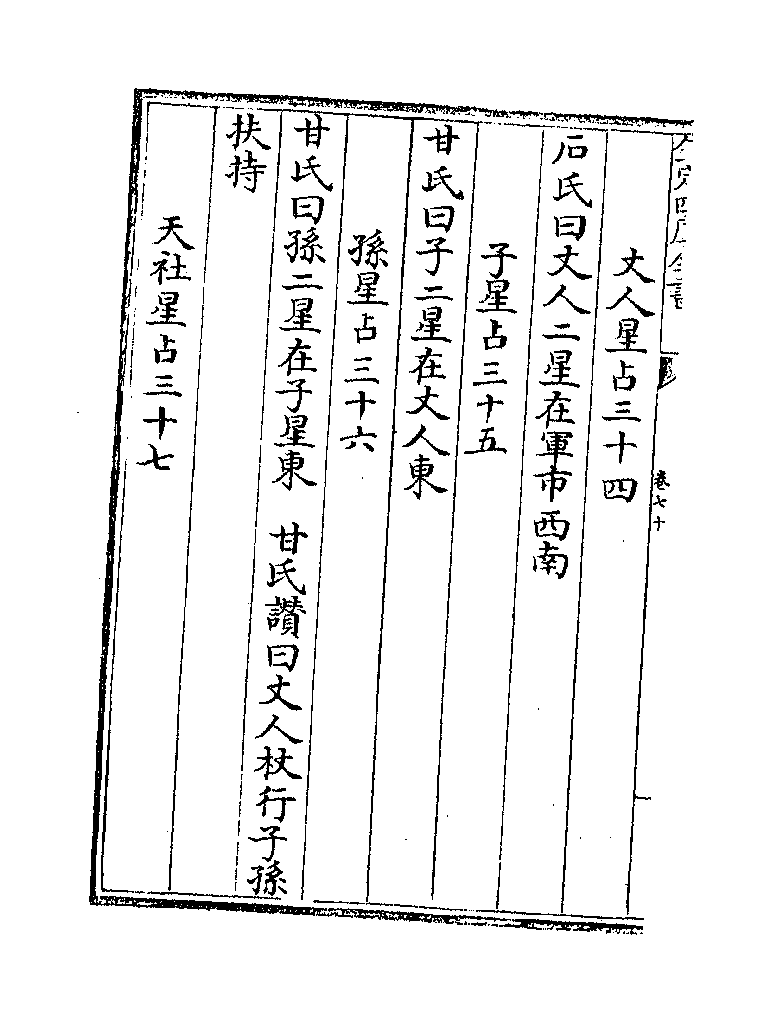 卷七十
丈人星占三十四
石氏曰丈人二星在軍市西南
子星占三十五
甘氏曰子二星在丈人東
孫星占三十六
甘氏曰孫二星在子星東　甘氏讚曰丈人杖行子孫
扶持
天社星占三十七